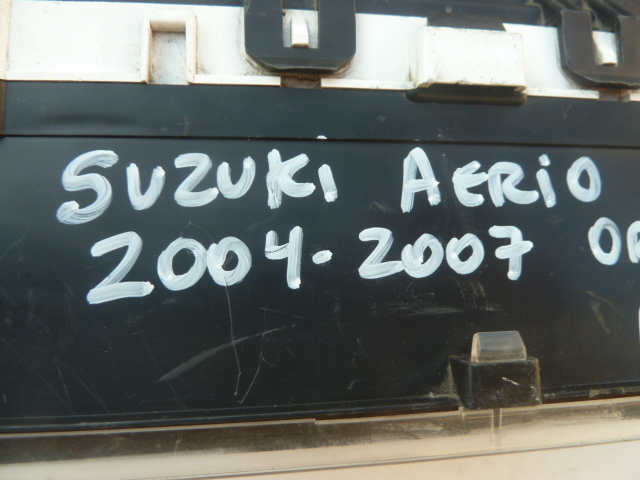 SUZUKI AERIO
2004-2007